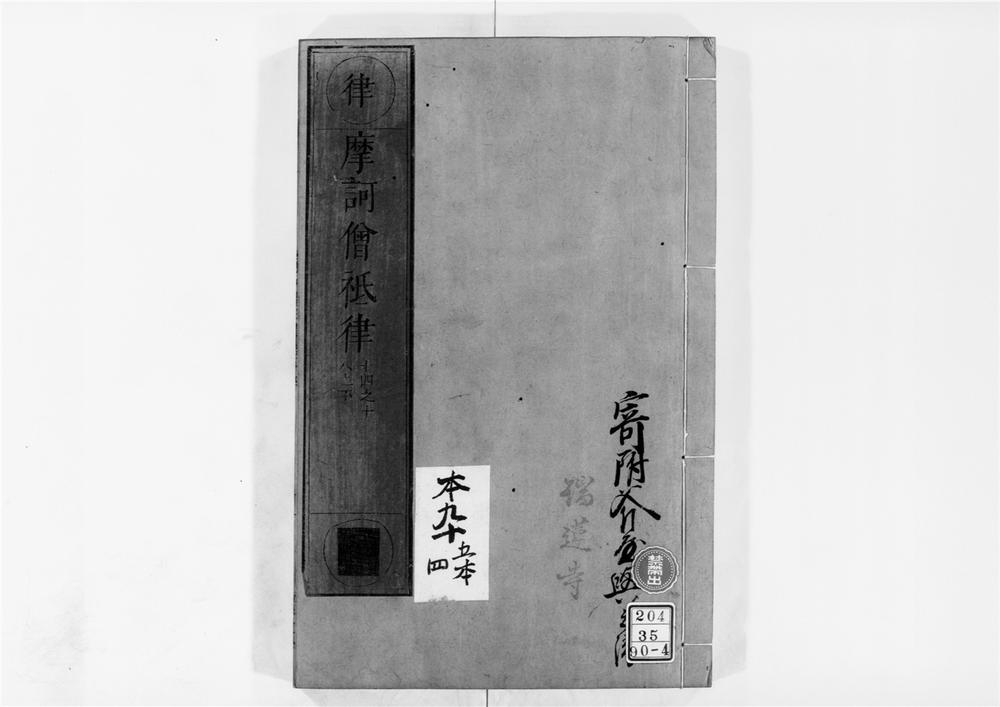 律
摩訶僧祇律
十四之十
八
寄附
瑞蓮寺
本九十
五本
四
禁帯出
204
35
90-4